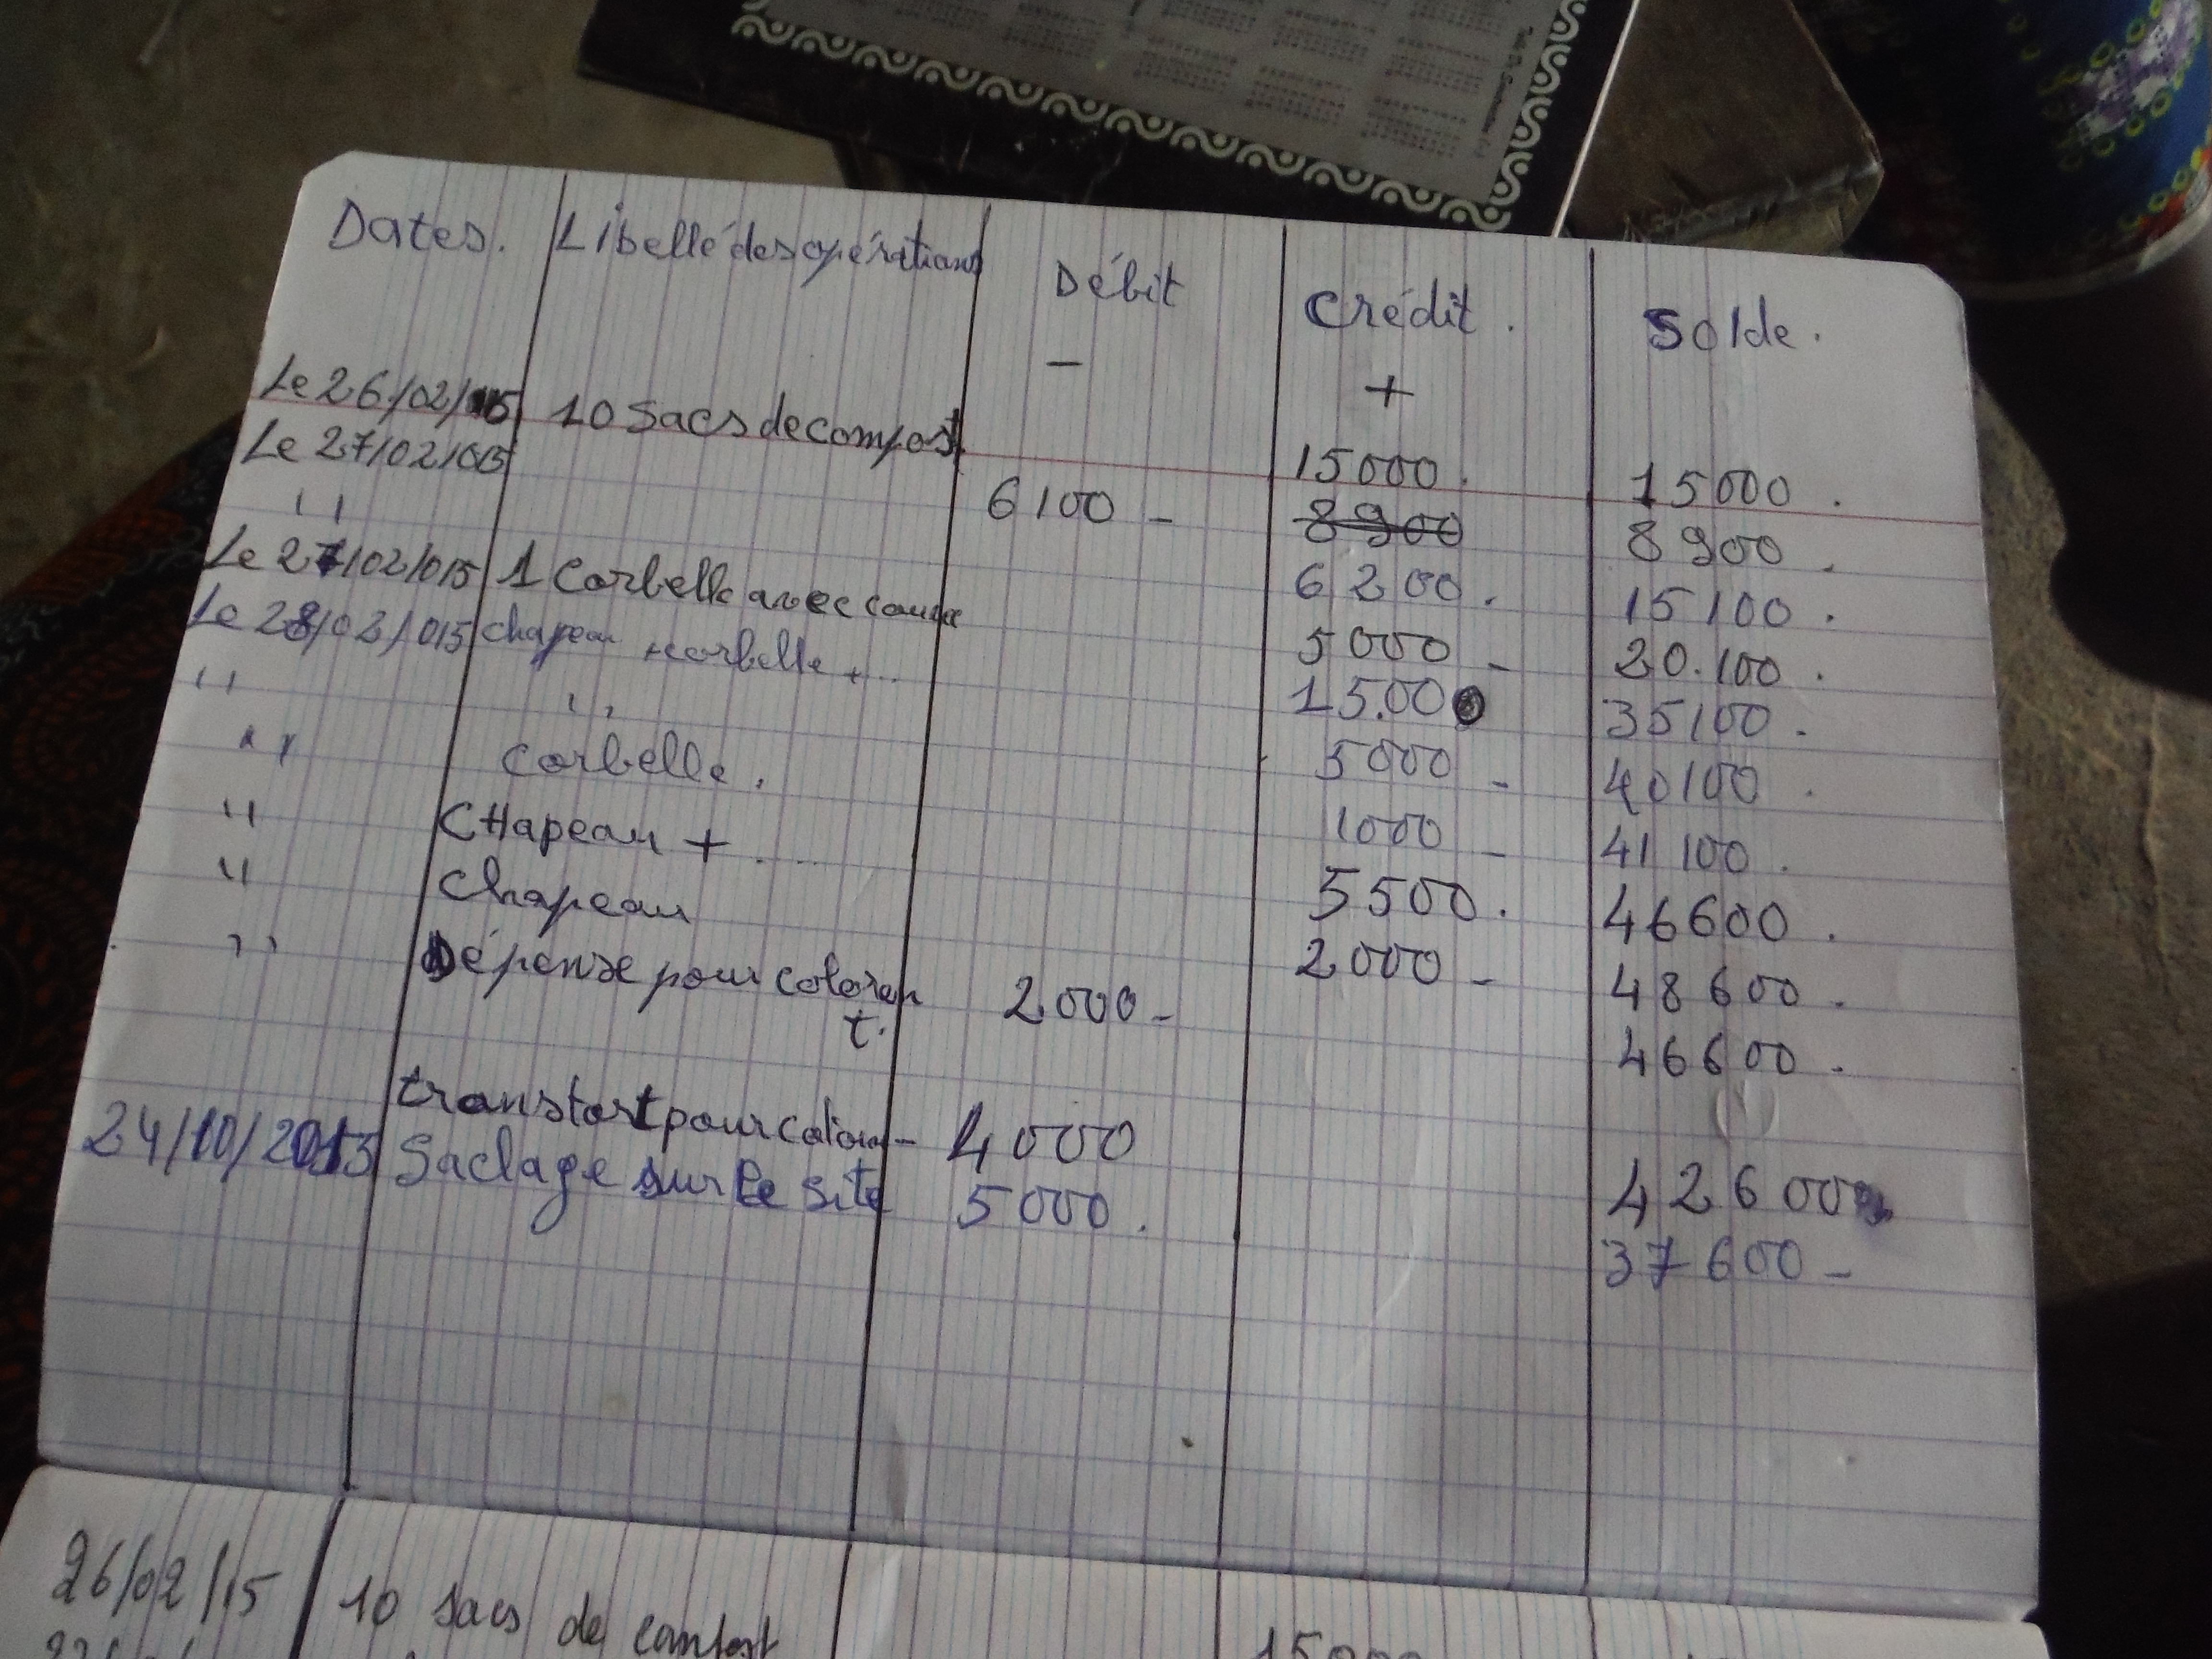 Dates. Libellé des opérations Débit Crédit. Solde.
- +
Le 26/02/015 10 Sacs de compost. 15000. 15000.
Le 27/02/015 6100 - 8900 8900.
" 6200. 15100.
Le 27/02/015 1 Corbelle avec 5000 - 20.100.
Le 28/02/015 chapeau + corbelle + ... 15.000 35100.
" " 5000 - 40100.
" Corbelle. 1000 - 41100.
" CHapeau + .... 5500. 46600.
" Chapeau 2000 - 48600.
" Dépense pour coloran
t. 2000 - 46600.
transtort pour 4000 42600
24/10/2015 Saclage sur le site 5000. 37600 -
26/02/15 10 sacs de comfost 15000